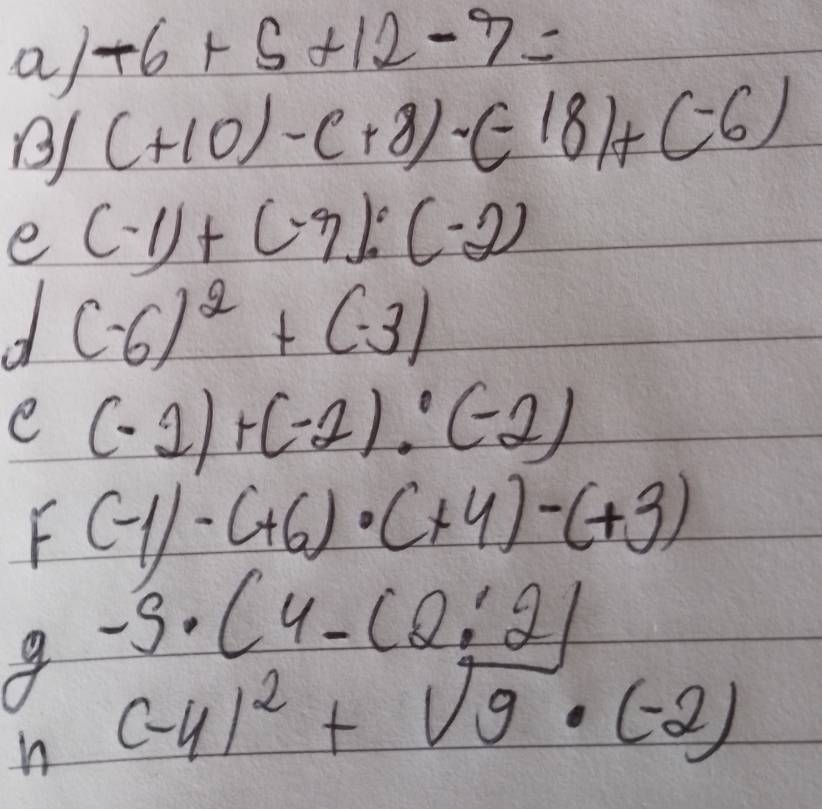 a) -6 + 5 + 12 - 7 =
B) (+10) - (+8) - (-18) + (-6)
c (-1) + (-7) : (-2)
d (-6)² + (-3)
e (-2) + (-2) : (-2)
F (-1) - (+6) · (+4) - (+3)
g -5 · (4 - (2 : 2)
h (-4)² + √9 · (-2)